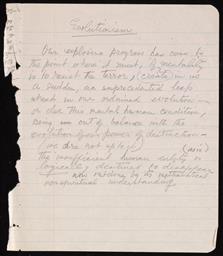 Evolutionism
Our explosive progress has come to
the point where it must, if mentality
is to resist the terror, (create) in us
a sudden, an unprecedented leap
ahead in our ordained evolution —
or else this mental human condition,
being um out of balance with the
evolution of our power of destruction —
(we dare not use it)
(now)
the insufficient human entity is
logically destined to disappear
now existing by its materialistical
nonspiritual understanding